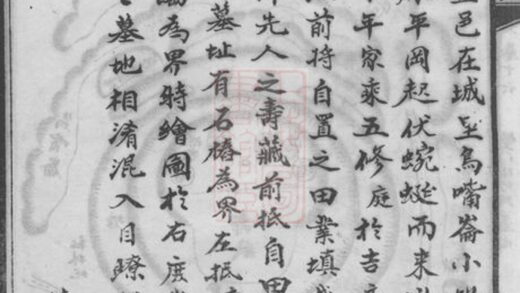 邑在城北烏嘴崙小
平岡起伏蜿蜒而来
年家乘五修庭於吉
前将自置之田業填
先人之壽藏前抵自田
墓址有石樁為界左抵
為界時繪圖於右庶
墓地相淆混入目瞭